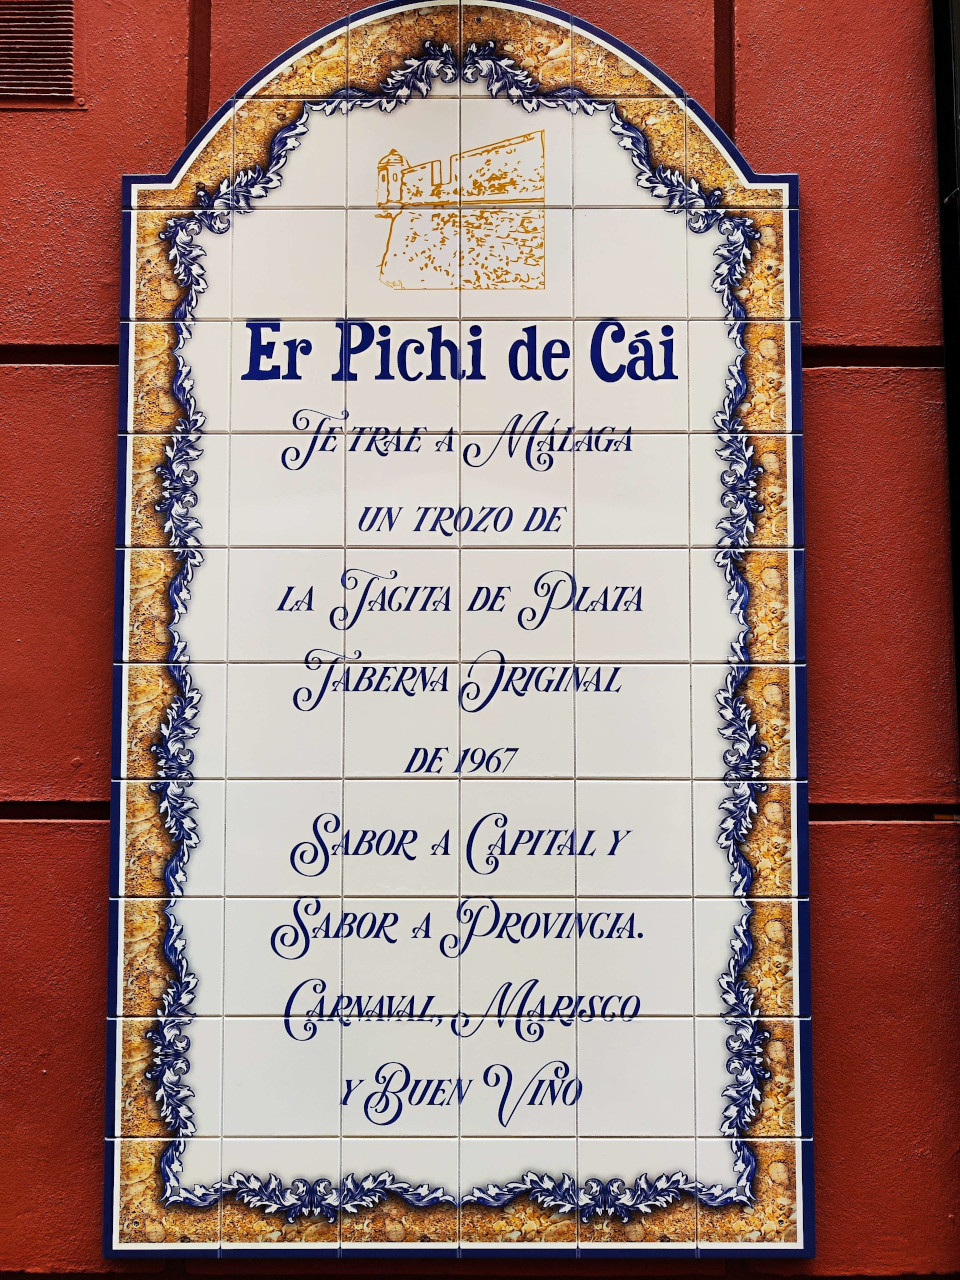 Er Pichi de Cái
TE TRAE A MÁLAGA
UN TROZO DE
LA TACITA DE PLATA
TABERNA ORIGINAL
DE 1967
SABOR A CAPITAL Y
SABOR A PROVINCIA.
CARNAVAL, MARISCO
Y BUEN VINO